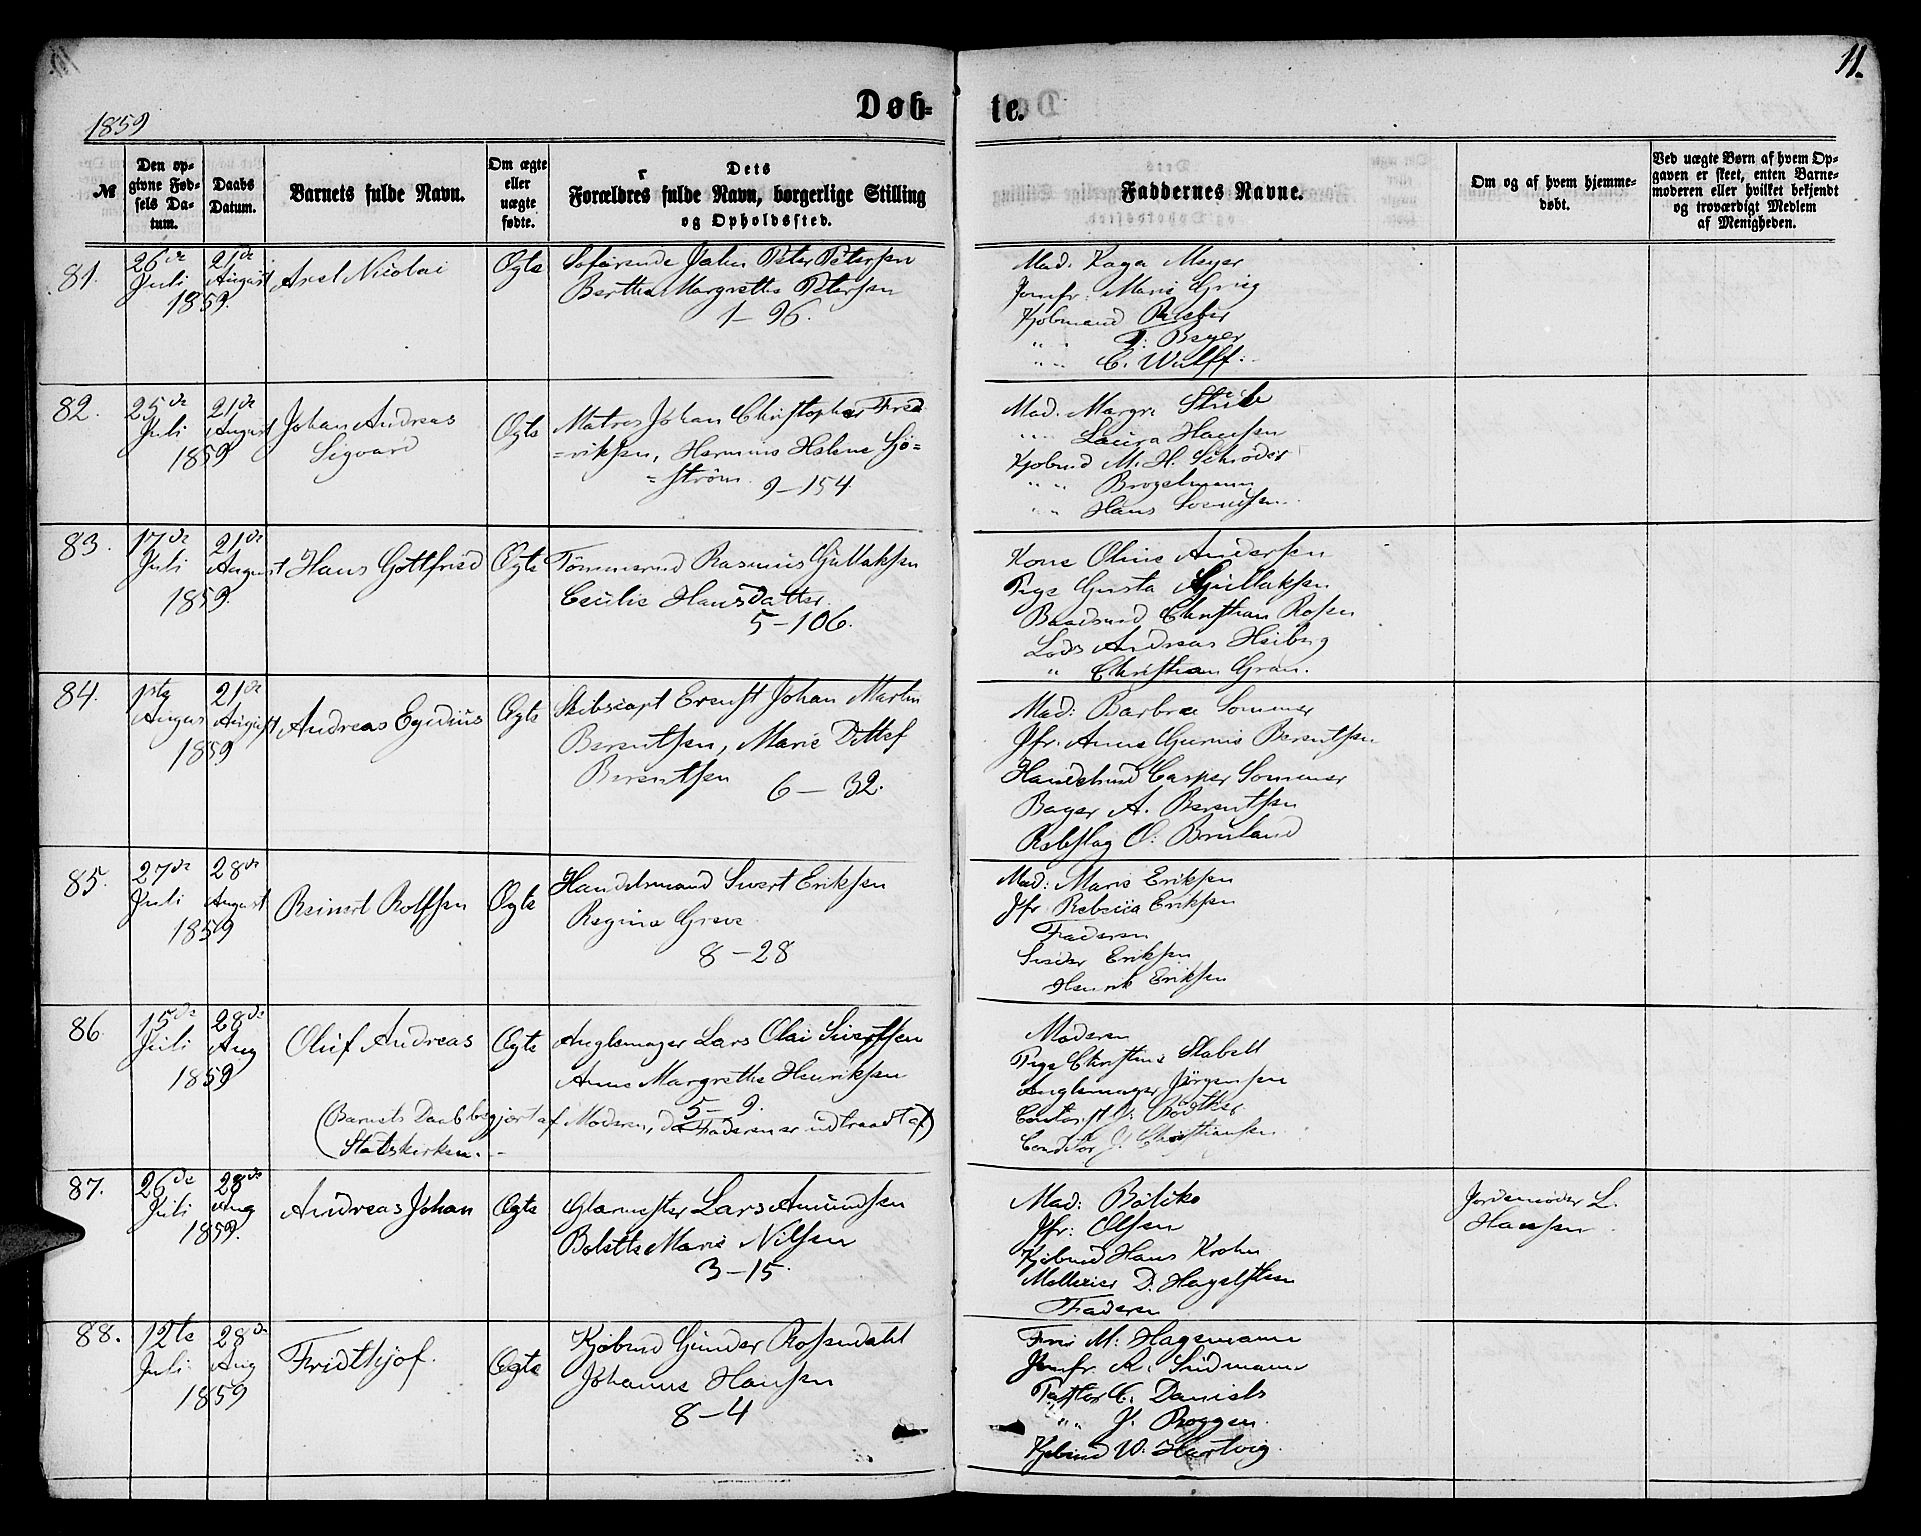 11.
1859
Døb-
te.
№
Den op-
givne Fød-
sels Da-
tum.
Daabs
Datum.
Barnets fulde Navn.
Om ægte
eller
uægte
fødte.
Dets
Forældres fulde Navn, borgerlige Stilling
og Opholdssted.
Faddernes Navne.
Om og af hvem hjemme-
døbt.
Ved uægte Børn af hvem Op-
gaven er skeet, enten Barne-
moderen eller hvilket bekjendt
og troværdigt Medlem
af Menigheden.
81.
26de
Juli
1859.
21de
August
Axel Nicolai
Ægte
Søfarende John Peter Petersen
Berthe Margrethe Petersen
1–96.
Mad. Kaya Meyer
Jomfr: Marie Grieg
Kjøbmand
" " F: Beyer
" " C. Wulff.
82.
25de
Juli
1859
21de
August
Johan Andreas
Sigvard
Ægte
Matros Johan Christopher Fred
=riksen, Helene Sjø=
=strøm. 9–154.
Mad. Margr. Stub
" " Laura Hansen
Kjøbmd M. H. Schrøder
" " Brogelmann
" " Hans
83.
17de
Juli
1859.
21de
August
Hans Gottfried
Ægte
Tømmermd Rasmus Gullaksen
Cecilie Hansdatter
5–106.
Kone Oline Andersen
Pige Gusta Gullaksen
Baadsmd Christian Rosen
Lods Andreas Heiberg
" Christian Gran.
84.
1ste
August
1859
21de
August
Andreas Egidius
Ægte
Skibscapt Ernst Johan Martin
Berentsen, Marie Ditlef
Berentsen 6–32.
Mad: Barbra Sommer
Jfr. Anne Gurine Berentsen
Handelsmd Casper Sommer
Bager A. Berentsen
Rebslag O: Bruland
85.
27de
Juli
1859
28de
August
Reinert Rolfsen
Ægte
Handelsmand Sivert Eriksen
Regine Greve
8–28
Mad: Marie Eriksen
Jfr Rebecca Eriksen
Faderen
Eriksen
Henrik Eriksen
86
15de
Juli
1859
28de
Aug
Oluf Andreas
Ægte
Anglemager Lars Olai Sivertsen
Anne Margrethe Henriksen
5–9.
(Barnets Daab begjært af Moderen, da Faderen er udtraadt af)
Statskirken.
Moderen
Pige Christine Stabell
Anglemager Jørgensen
Contorist
Conditor J. Christiansen
87.
26de
Juli
1859.
28de
Aug
Andreas Johan
Ægte
Glarmester Lars Amundsen
Bolette Marie Nilsen
3–15.
Mad: Bølcke
Jfr: Olsen
Kjøbmd Hans Krohn
D. Hagelsteen
Faderen
Jordemoder L.
Hansen
88.
12te
Juli
1859
28de
Aug
Fridthjof.
Ægte
Kjøbmd Gunder Rosendahl
Johanne Hansen
8–4
Fru M: Hagemann
Jomfr A. Sundmann
Pastor C. Daniels
" " J. Roggen.
Kjøbmd W. Hartvig.